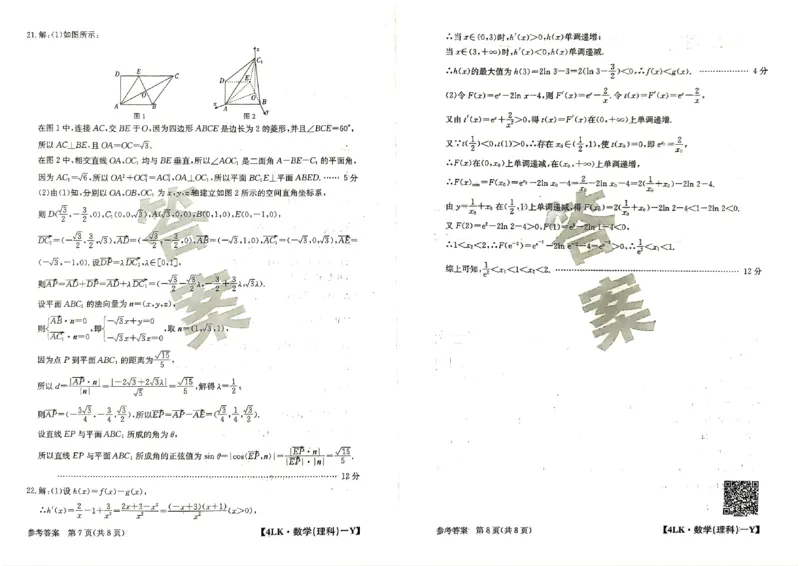 21.解:(1)如图所示:
D E C
O
A B
图1
z
C₁
D E
O
A B
x y
图2
在图1中,连接AC,交BE于O,因为四边形ABCE是边长为2的菱形,并且∠BCE=60°,
所以AC⊥BE,且OA=OC=√3.
在图2中,相交直线OA,OC₁均与BE垂直,所以∠AOC₁是二面角A-BE-C₁的平面角,
因为AC₁=√6,所以OA²+OC₁²=AC₁²,OA⊥OC₁,所以平面BC₁E⊥平面ABED. …… 5分
(2)由(1)知,分别以OA,OB,OC₁为x,y,z轴建立如图2所示的空间直角坐标系,
则D(√3/2,-3/2,0),C₁(0,0,√3),A(√3,0,0),B(0,1,0),E(0,-1,0),
DC₁=(-√3/2,3/2,√3),AD=(-√3/2,-3/2,0),AB=(-√3,1,0),AC₁=(-√3,0,√3),AE=
(-√3,-1,0).设DP=λDC₁,λ∈[0,1],
则AP=AD+DP=AD+λDC₁=(-√3/2-√3/2λ,-3/2+3/2λ,√3λ).
设平面ABC₁的法向量为n=(x,y,z),
则{AB·n=0 AC₁·n=0,即{-√3x+y=0 -√3x+√3z=0,取n=(1,√3,1),
因为点P到平面ABC₁的距离为√15/5,
所以d=|AP·n|/|n|=|-2√3+2√3λ|/√5=√15/5,解得λ=1/2,
则AP=(-3√3/4,-3/4,√3/2),所以EP=AP-AE=(√3/4,1/4,√3/2).
设直线EP与平面ABC₁所成的角为θ,
所以直线EP与平面ABC₁所成角的正弦值为sin θ=|cos⟨EP,n⟩|=|EP·n|/|EP|·|n|=√15/5.
…… 12分
22.解:(1)设h(x)=f(x)-g(x),
∴h′(x)=2/x-1+3/x²=2x+3-x²/x²=(-x+3)(x+1)/x²(x>0),
参考答案 第7页(共8页) 【4LK·数学(理科)-Y】
∴当x∈(0,3)时,h′(x)>0,h(x)单调递增;
当x∈(3,+∞)时,h′(x)<0,h(x)单调递减.
∴h(x)的最大值为h(3)=2ln 3-3=2(ln 3-3/2)<0,∴f(x)<g(x). …… 4分
(2)令F(x)=eˣ-2ln x-4,则F′(x)=eˣ-2/x.令t(x)=F′(x)=eˣ-2/x,
又由t′(x)=eˣ+2/x²>0,得t(x)=F′(x)在(0,+∞)上单调递增.
又∵t(1/2)<0,t(1)>0,∴存在x₀∈(1/2,1),使t(x₀)=0,即eˣ⁰=2/x₀,
∴F(x)在(0,x₀)上单调递减,在(x₀,+∞)上单调递增,
∴F(x)min=F(x₀)=eˣ⁰-2ln x₀-4=2/x₀-2ln x₀-4=2(1/x₀+x₀)-2ln 2-4.
由y=1/x₀+x₀在(1/2,1)上单调递减,得F(x₀)=2(1/x₀+x₀)-2ln 2-4<1-2ln 2<0.
又F(2)=e²-2ln 2-4>0,F(1)=e¹-2ln 1-4<0.
综上可知,1/e²<x₁<1<x₂<2. …… 12分
参考答案 第8页(共8页) 【4LK·数学(理科)-Y】
答案
答案